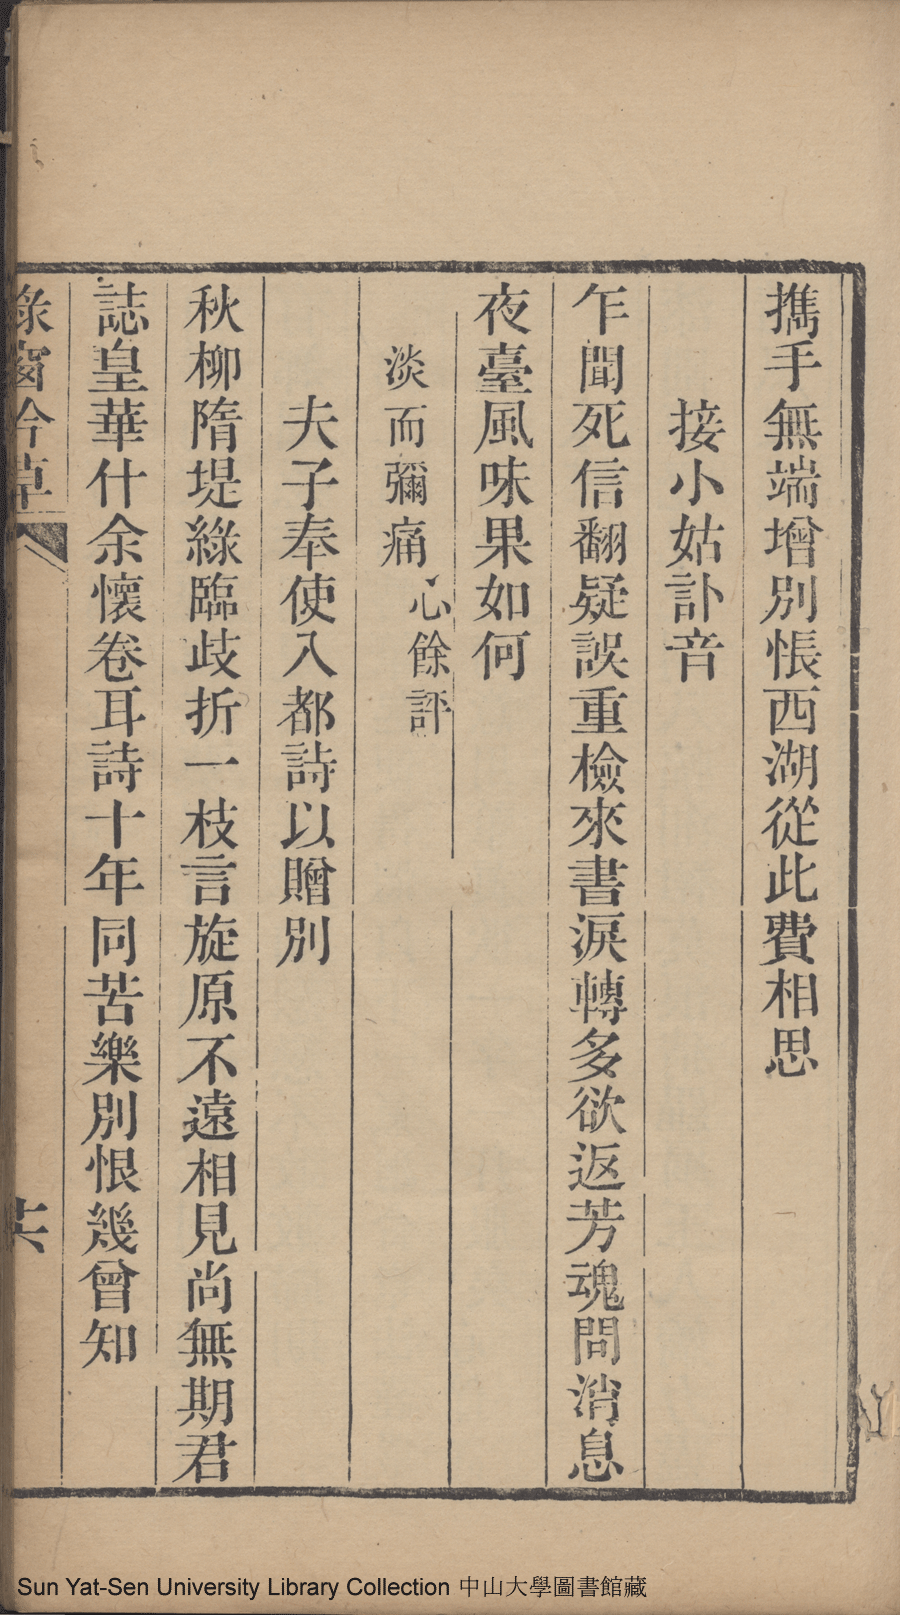 攜手無端增別悵西湖從此費相思
接小姑訃音
乍聞死信翻疑誤重檢來書淚轉多欲返芳魂問消息
夜臺風味果如何
淡而彌痛心餘評
夫子奉使入都詩以贈別
秋柳隋堤綠臨歧折一枝言旋原不遠相見尚無期君
誌皇華什余懷卷耳詩十年同苦樂別恨幾曾知
綠窗吟草
十六
Sun Yat-Sen University Library Collection 中山大學圖書館藏